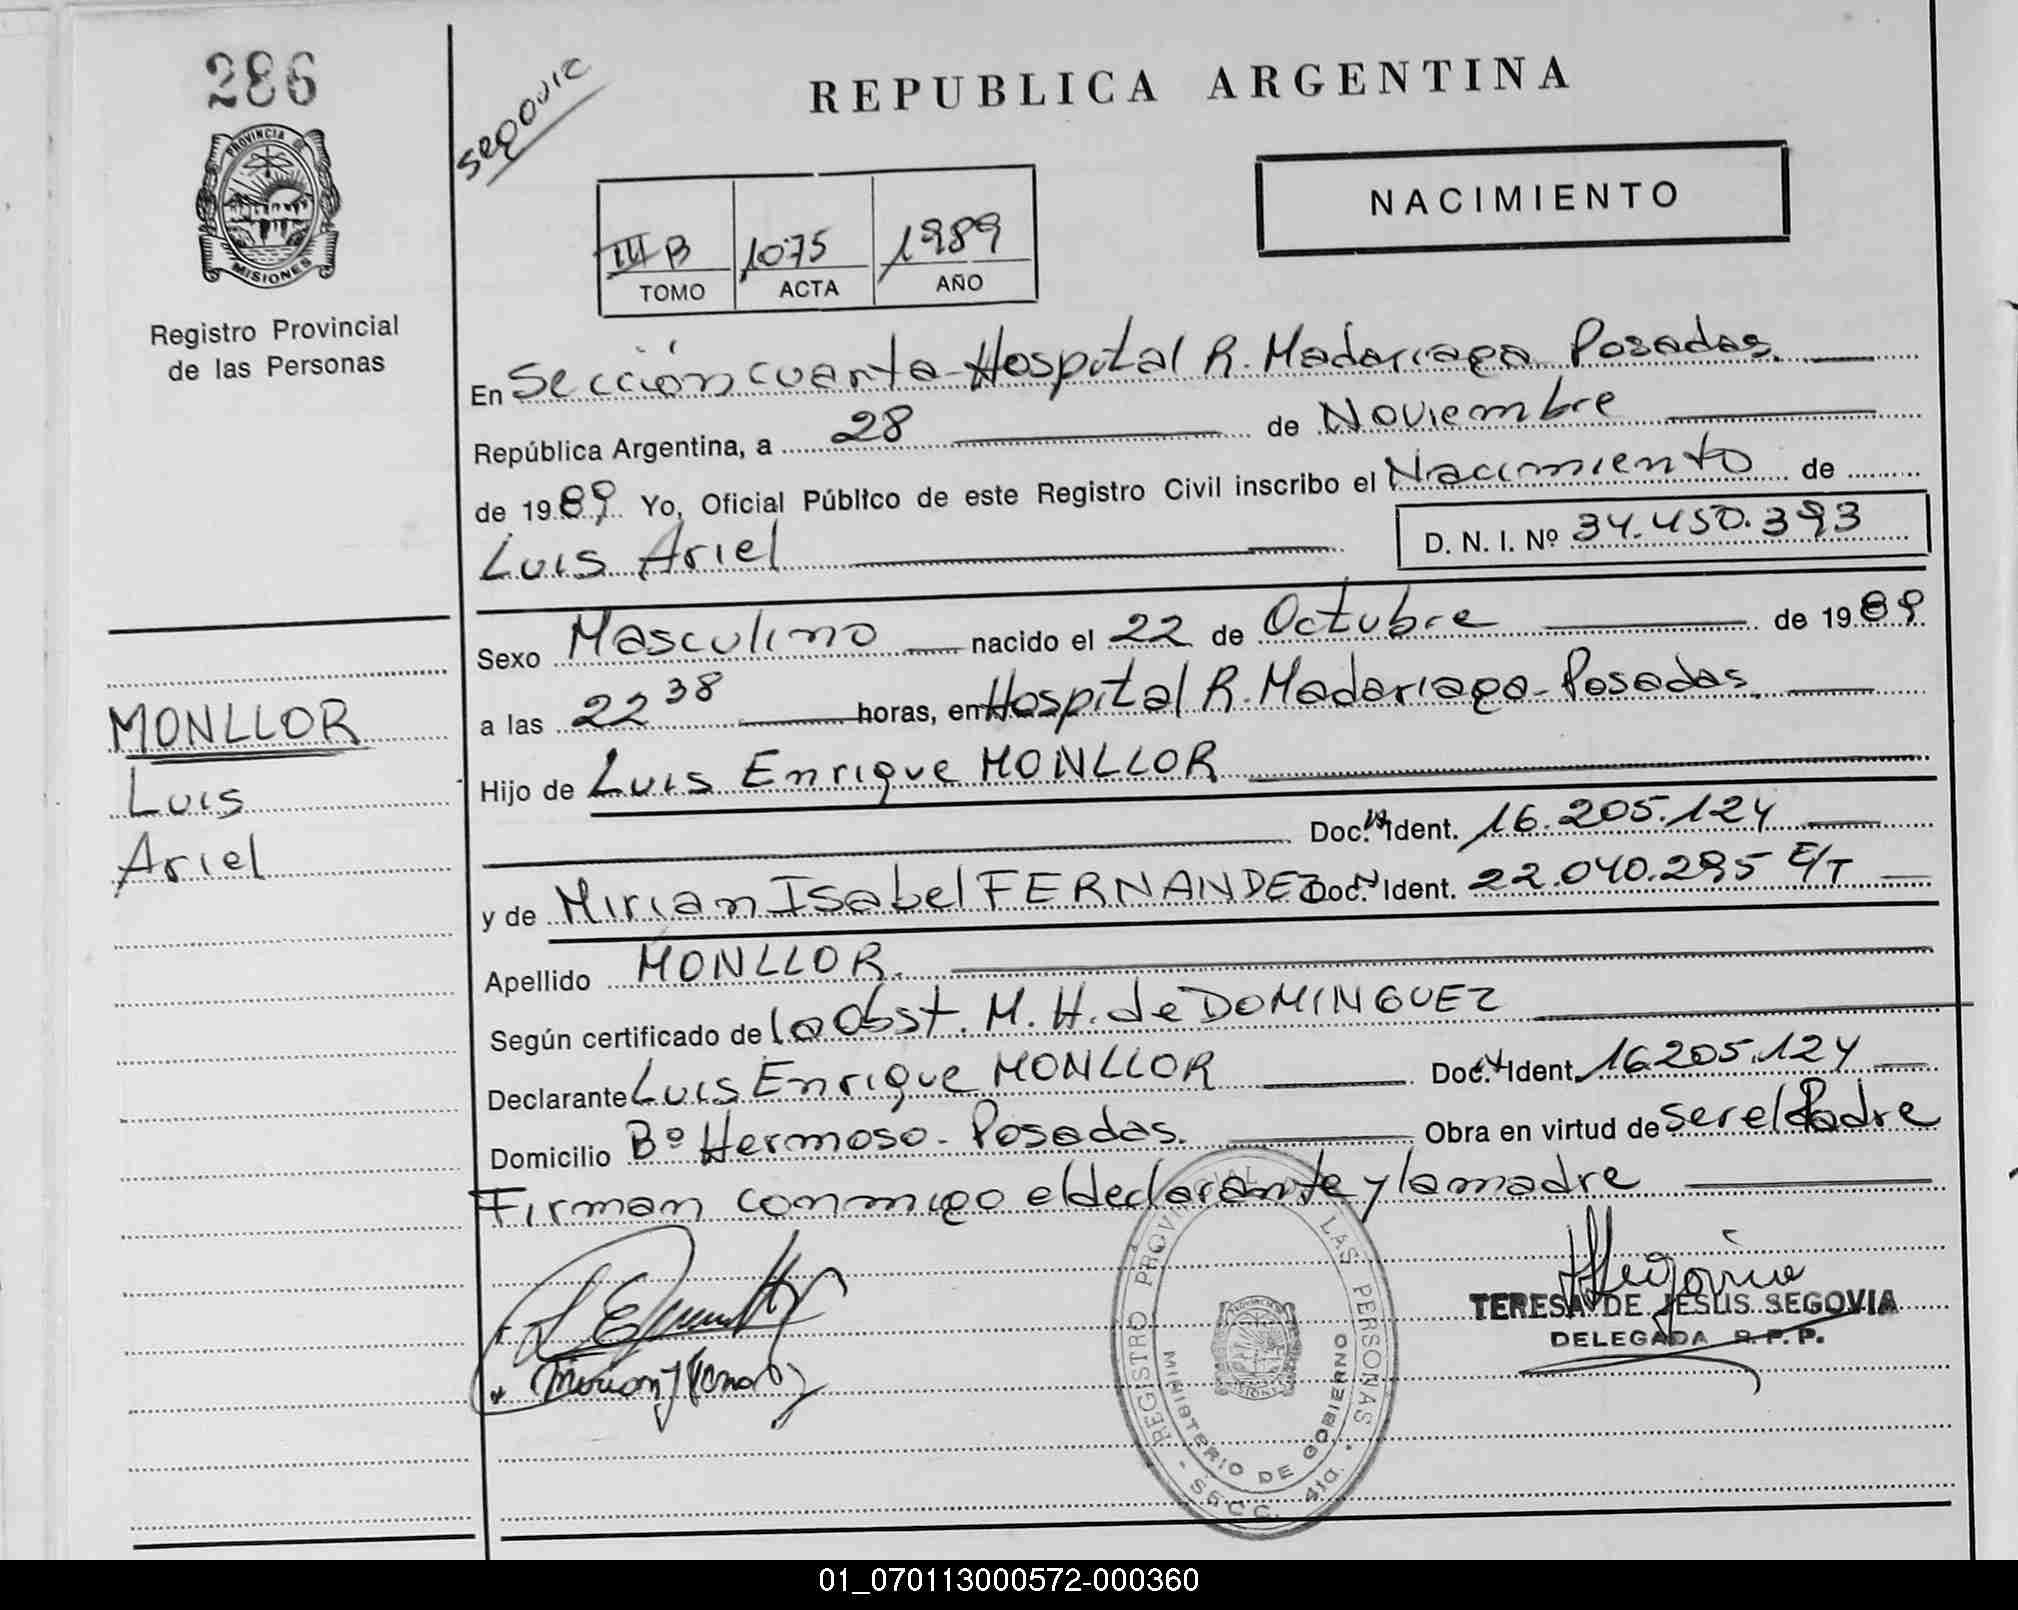 286
PROVINCIA DE
MISIONES
Registro Provincial
de las Personas
MONLLOR
Luis
Ariel
Segovia
REPUBLICA ARGENTINA
NACIMIENTO
III B 1075 1989
TOMO ACTA AÑO
En Sección cuarta-Hospital R. Madariaga Posadas.
República Argentina, a 28 de Noviembre
de 1989 Yo, Oficial Público de este Registro Civil inscribo el Nacimiento de
Luis Ariel D. N. I. Nº 34.450.393
Sexo Masculino nacido el 22 de Octubre de 1989
a las 22 38 horas, en Hospital R. Madariaga-Posadas.
Hijo de Luis Enrique MONLLOR
Doc. Ident. 16.205.124
y de Mirian Isabel FERNANDEZ Doc. Ident. 22.040.295 E/T
Apellido MONLLOR.
Según certificado de la Obst. M. H. de DOMINGUEZ
Declarante Luis Enrique MONLLOR Doc. Ident. 16.205.124
Domicilio Bº Hermoso - Posadas. Obra en virtud de ser el Padre
Firman conmigo el declarante y la madre
TERESA DE JESUS SEGOVIA
DELEGADA R.P.P.
REGISTRO PROVINCIAL LAS PERSONAS
MINISTERIO DE GOBIERNO
- SECC. 4ta. -
01_070113000572-000360